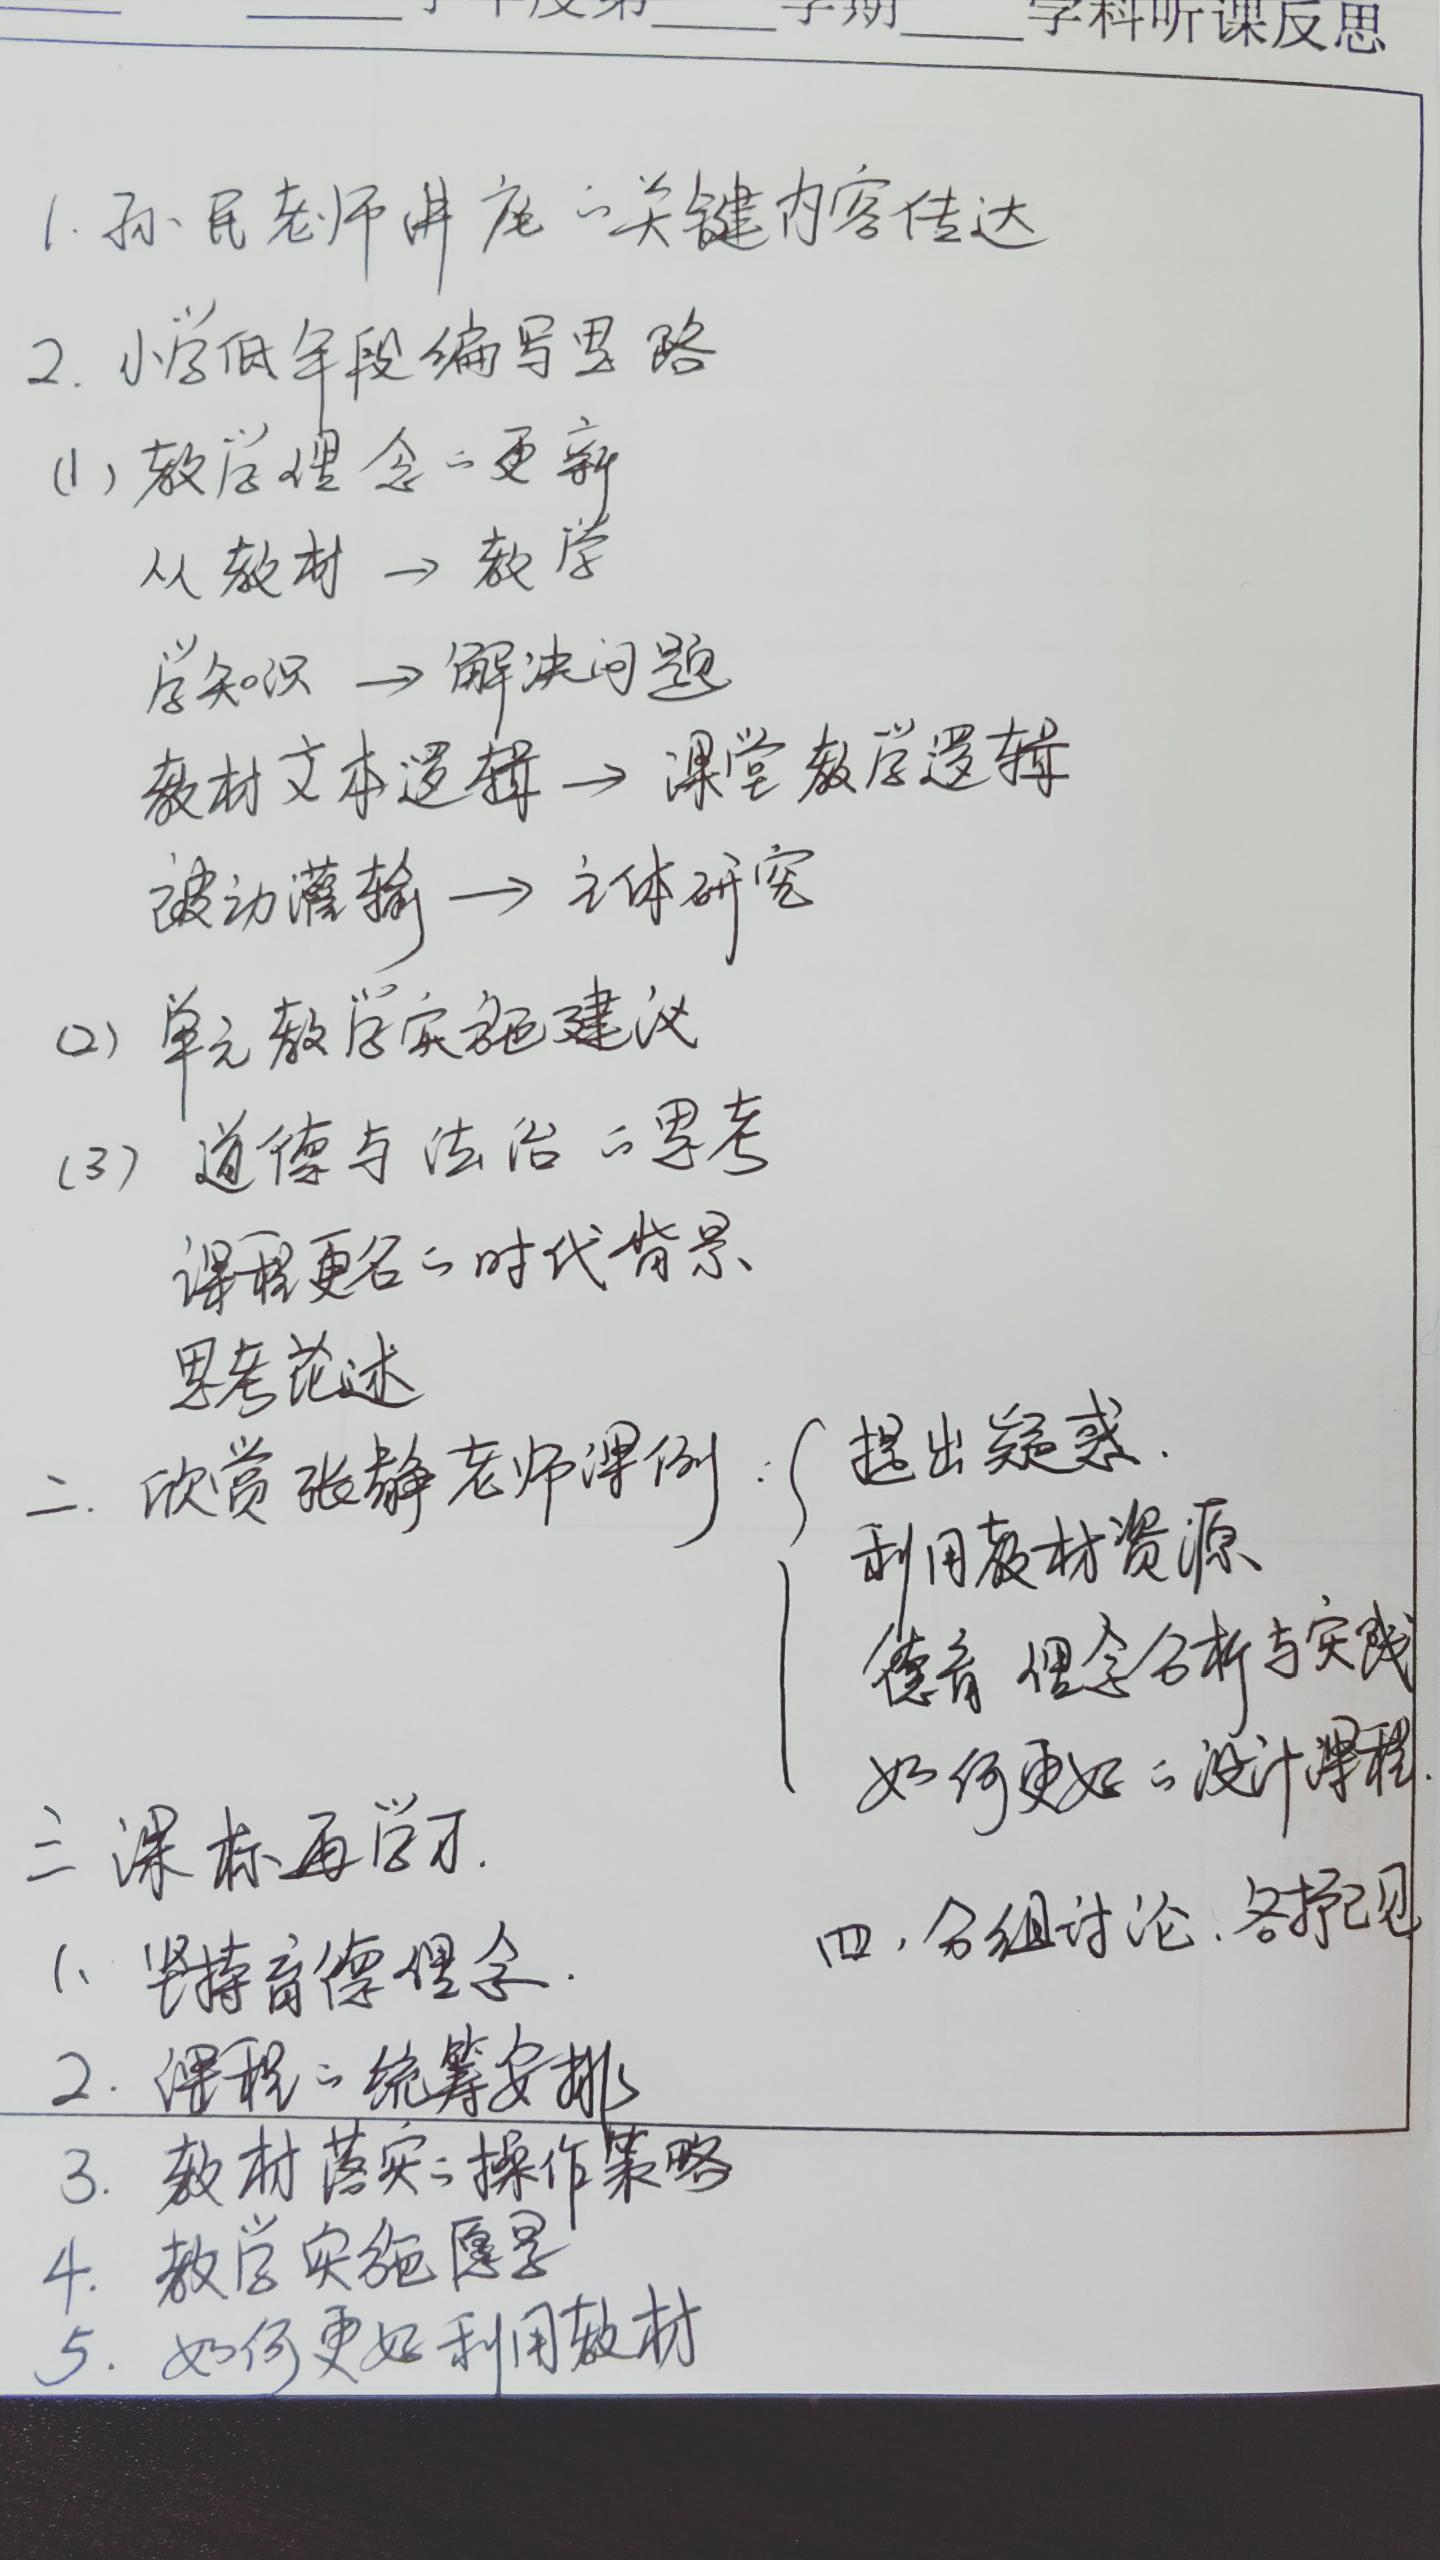 学年度第____学期____学科听课反思
1. 孙民老师讲座的关键内容传达
2. 小学低年段编写思路
(1) 教学理念的更新
从教材 → 教学
学知识 → 解决问题
教材文本逻辑 → 课堂教学逻辑
被动灌输 → 主体研究
(2) 单元教学实施建议
(3) 道德与法治的思考
课程更名的时代背景
思考论述
二. 欣赏张静老师课例: 提出疑惑.
利用教材资源
德育理念分析与实践
如何更好的设计课程.
三 课标再学习.
1、坚持育德理念.
2. 课程的统筹安排
3. 教材落实的操作策略
4. 教学实施愿景
5. 如何更好利用教材
四、分组讨论、各抒己见